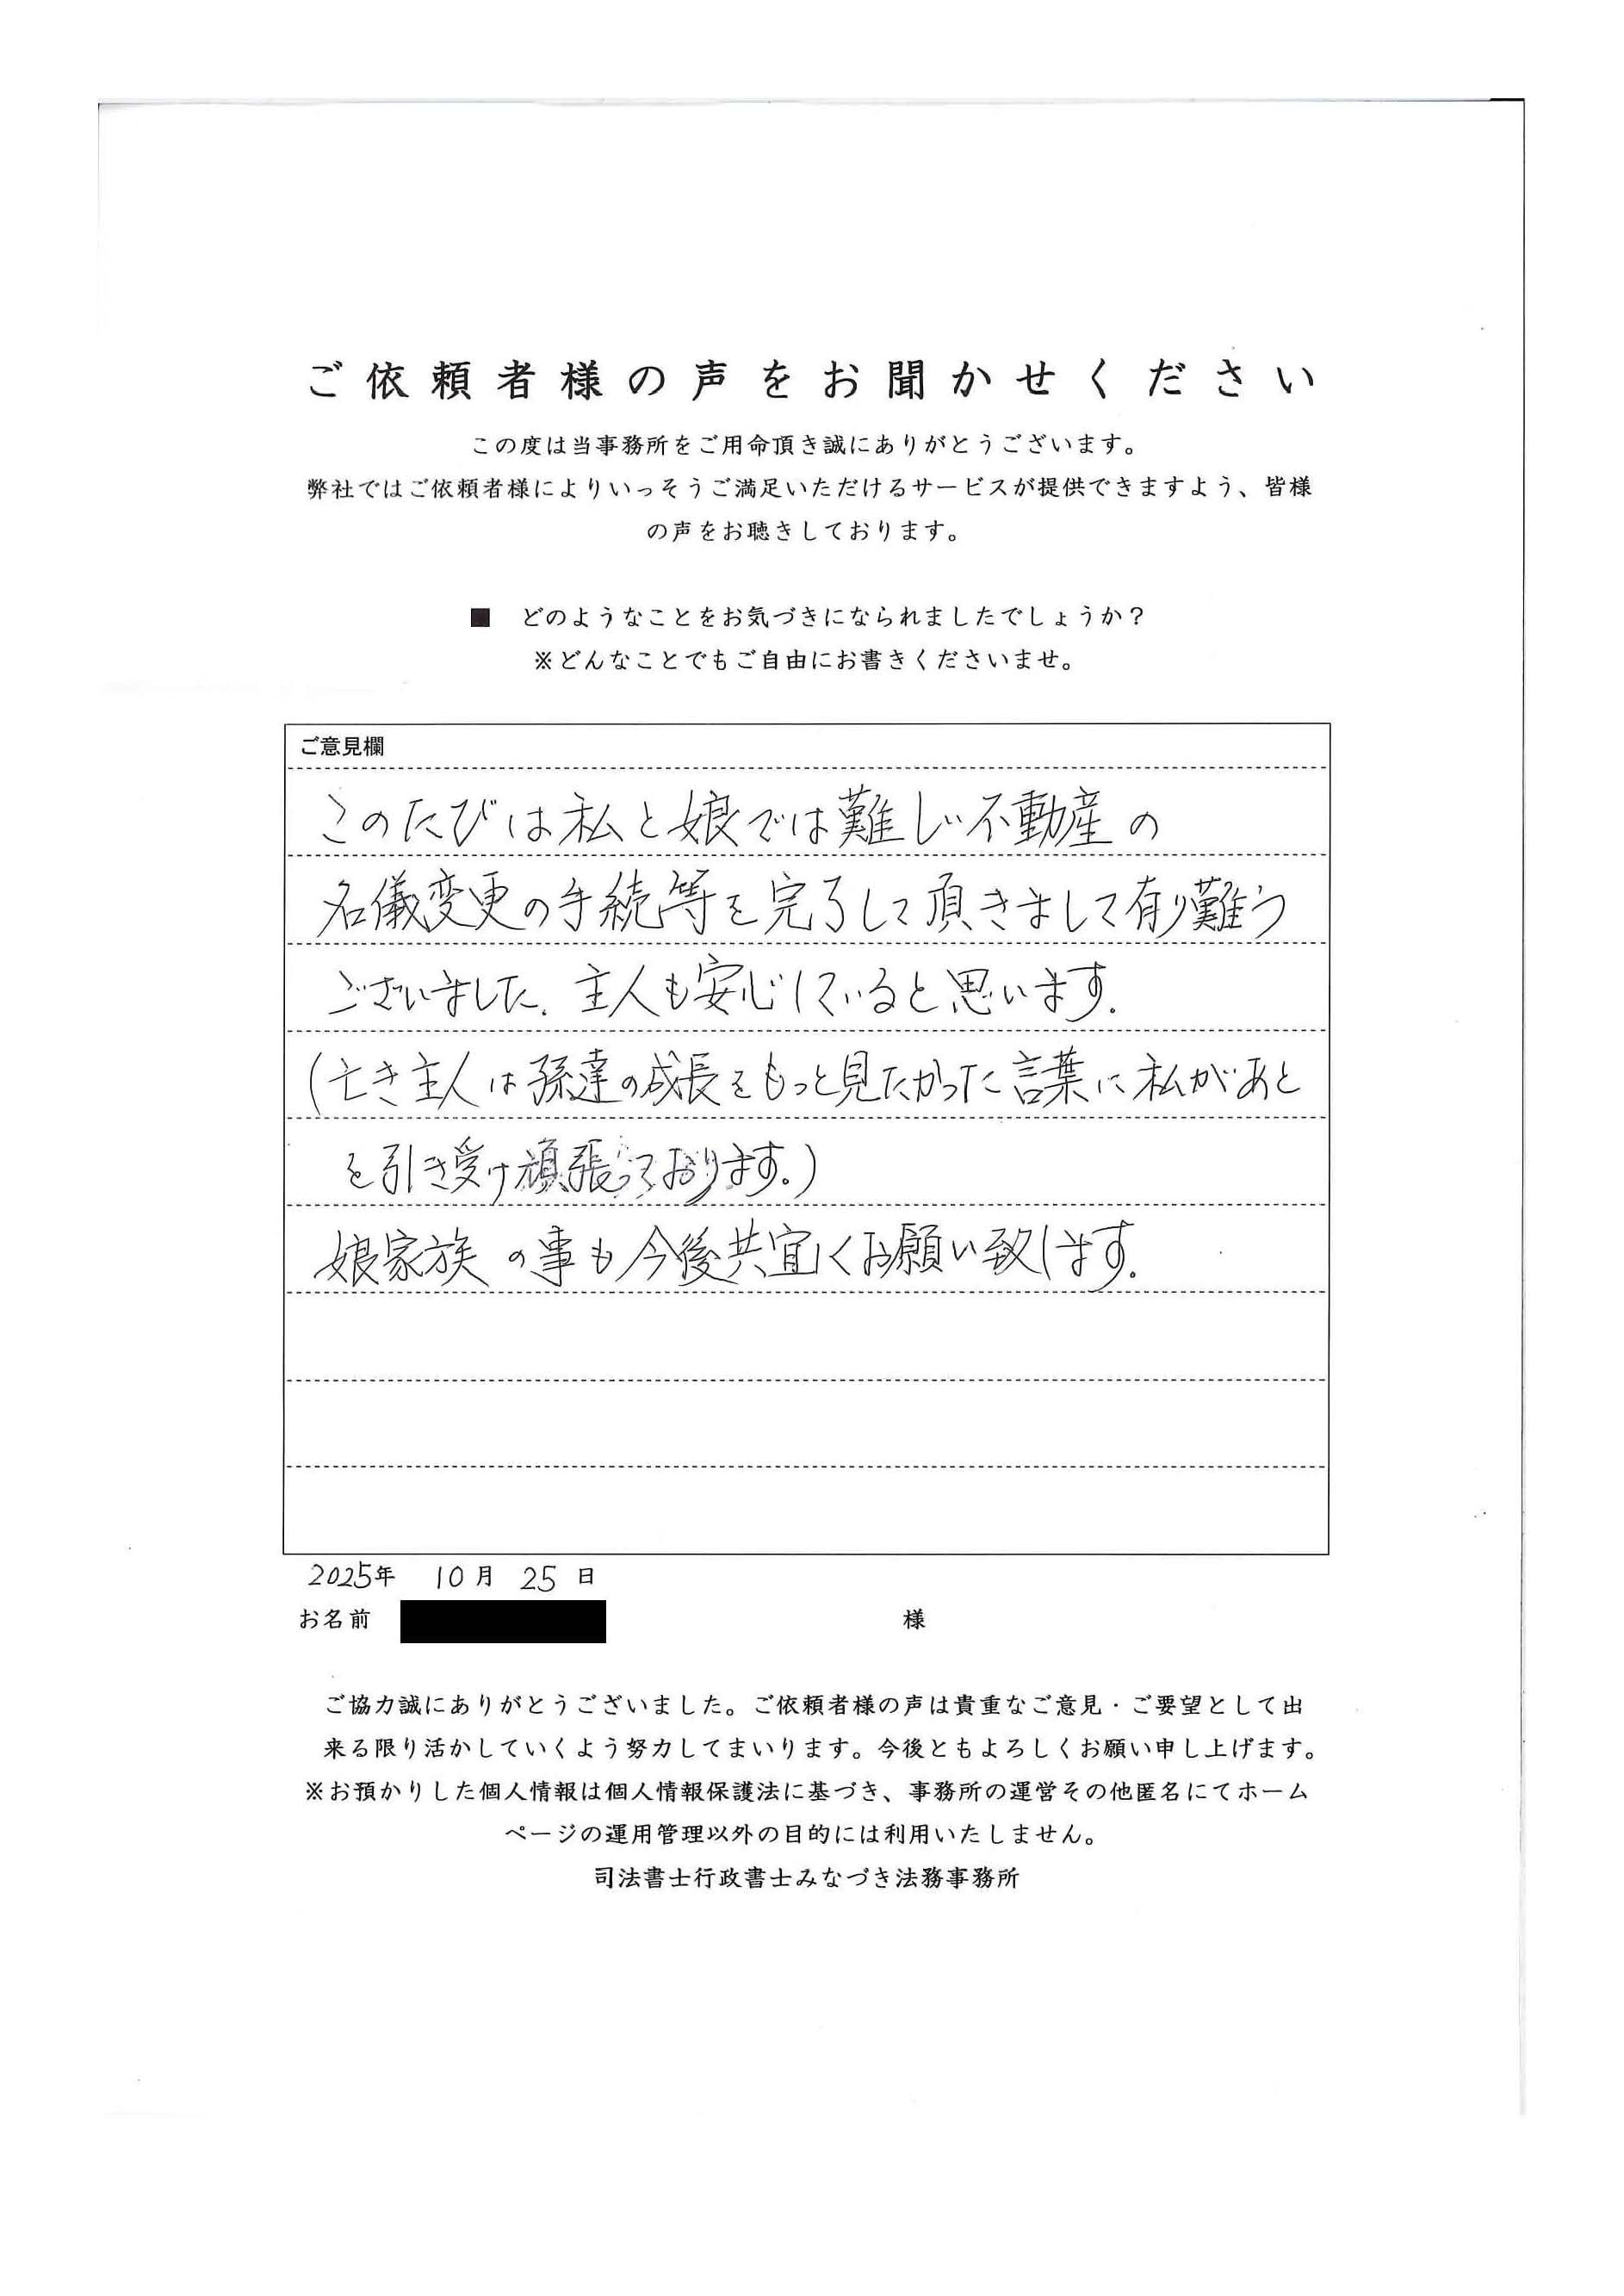 ご依頼者様の声をお聞かせください
この度は当事務所をご用命頂き誠にありがとうございます。
弊社ではご依頼者様によりいっそうご満足いただけるサービスが提供できますよう、皆様
の声をお聴きしております。
■　どのようなことをお気づきになられましたでしょうか？
※どんなことでもご自由にお書きくださいませ。
ご意見欄
このたびは私と娘では難しい不動産の
名儀変更の手続等を完了して頂きまして有り難う
ございました。主人も安心していると思います。
(亡き主人は孫達の成長をもっと見たかった言葉に私があと
を引き受け頑張っております。)
娘家族の事も今後共宜しくお願い致します。
2025年　10月　25日
お名前　様
ご協力誠にありがとうございました。ご依頼者様の声は貴重なご意見・ご要望として出
来る限り活かしていくよう努力してまいります。今後ともよろしくお願い申し上げます。
※お預かりした個人情報は個人情報保護法に基づき、事務所の運営その他匿名にてホーム
ページの運用管理以外の目的には利用いたしません。
司法書士行政書士みなづき法務事務所